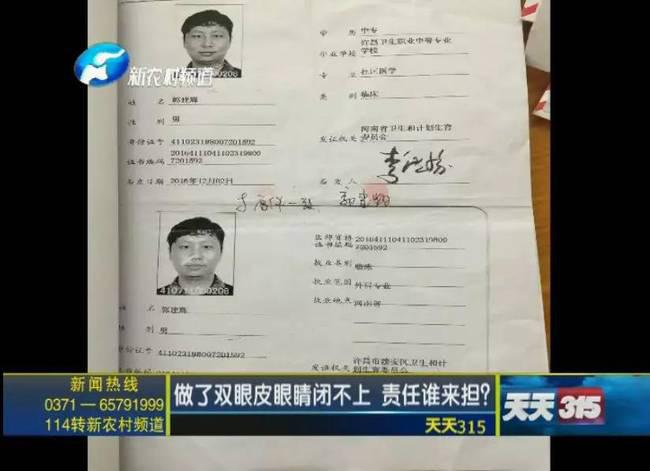 新农村频道
0208
姓 名 郭建辉
性 别 男
身份证号 411023198007201592
证书编码 20164111041102319800
7201592
签发日期 2016年12月02日
学 历 中专
毕业学校 许昌卫生职业中等专业
学校
专 业 社区医学
类 别 临床
发证机关 河南省卫生和计划生育
委员会
签发人
410711080208
姓 名 郭建辉
性 别 男
身份证号 411023198007201592
医师资格
证书编码 20164111041102319800
7201592
执业类别 临床
执业范围 外科专业
执业地点 河南省
发证机关 许昌市建安区卫生和计
划生育委员会
新闻热线
0371—65791999
114转新农村频道
做了双眼皮眼睛闭不上 责任谁来担?
天天315
天天315